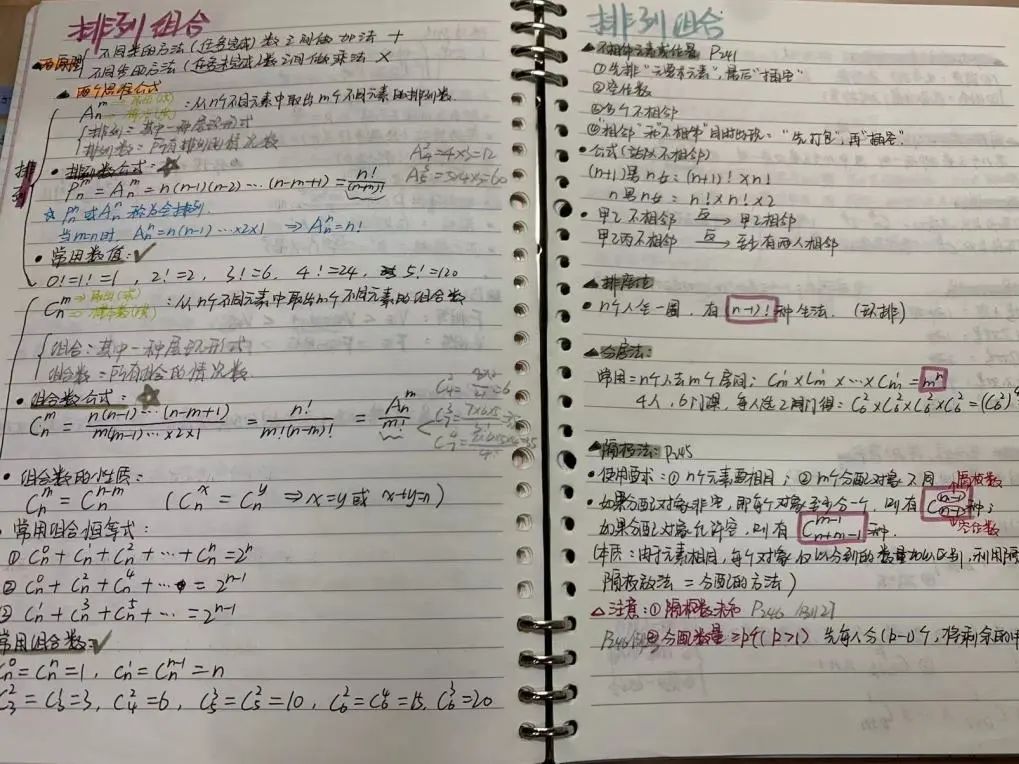 排列组合
两原则 不同类的方法(任务完成)数之间做加法 +
不同步的方法(任务未完成)数之间做乘法 ×
▲ 两个思维公式
A_n^m : 从n个不同元素中取出m个不同元素的排列数.
排列
排列=其中一种展现形式
排列数=所有排列的情况数
A_4^2=4×3=12
• 排列数公式:☆
A_5^3=5×4×3=60
P_n^m = A_n^m = n(n-1)(n-2)…(n-m+1) = n!/(n-m)!
☆ P_n^n 或 A_n^n 称为全排列.
当m=n时 A_n^n=n(n-1)…×2×1 ⇒ A_n^n=n!
• 常用数值:✓
0!=1!=1, 2!=2, 3!=6, 4!=24, 5!=120
C_n^m : 从n个不同元素中取出m个不同元素的组合数
组合:其中一种展现形式
组合数=所有组合的情况数.
• 组合数公式:☆
C_n^m = n(n-1)…(n-m+1)/m(m-1)…×2×1 = n!/m!(n-m)! = A_n^m/m!
• 组合数的性质:
C_n^m = C_n^{n-m} (C_n^x = C_n^y ⇒ x=y或 x+y=n)
常用组合恒等式:
① C_n^0 + C_n^1 + C_n^2 + … + C_n^n = 2^n
② C_n^0 + C_n^2 + C_n^4 + … = 2^{n-1}
③ C_n^1 + C_n^3 + C_n^5 + … = 2^{n-1}
常用组合数:✓
C_n^0 = C_n^n = 1, C_n^1 = C_n^{n-1} = n
C_3^2 = C_3^1 = 3, C_4^2 = 6, C_5^3 = C_5^2 = 10, C_6^2 = C_6^4 = 15, C_6^3 = 20
排列组合
P241
①先排"无要求元素",最后"插空"
②空位数
③多个不相邻
④"相邻"和"不相邻"同时出现: "先打包",再"插空".
• 公式(站队不相邻)
(n+1)男n女:(n+1)!×n!
n男n女: n!×n!×2
• 甲乙不相邻 反→ 甲乙相邻
甲乙丙不相邻 反→ 至少有两人相邻
▲排座法
• n个人坐一圈, 有 (n-1)! 种坐法. (环排)
▲分房法:
常用=n个人去m个房间: C_m^1×C_m^1×…×C_m^1 = m^n
4人,6门课,每人选2门得: C_6^2×C_6^2×C_6^2×C_6^2=(C_6^2)^4
▲隔板法:P245
• 使用要求:①n个元素要相同;②m个分配对象不同
隔板数
• 如果分配对象非空,即每个对象至少分一个,则有 C_{n-1}^{m-1} 种;
空位数
如果分配对象允许空,则有 C_{n+m-1}^{m-1} 种.
(本质:由于元素相同,每个对象仅以分到的数量加以区别,利用隔
隔板放法 = 分配的方法)
△注意:① P246
P246 ②分配数量≥p个(p>1) 先每人分(p-1)个,将剩余的